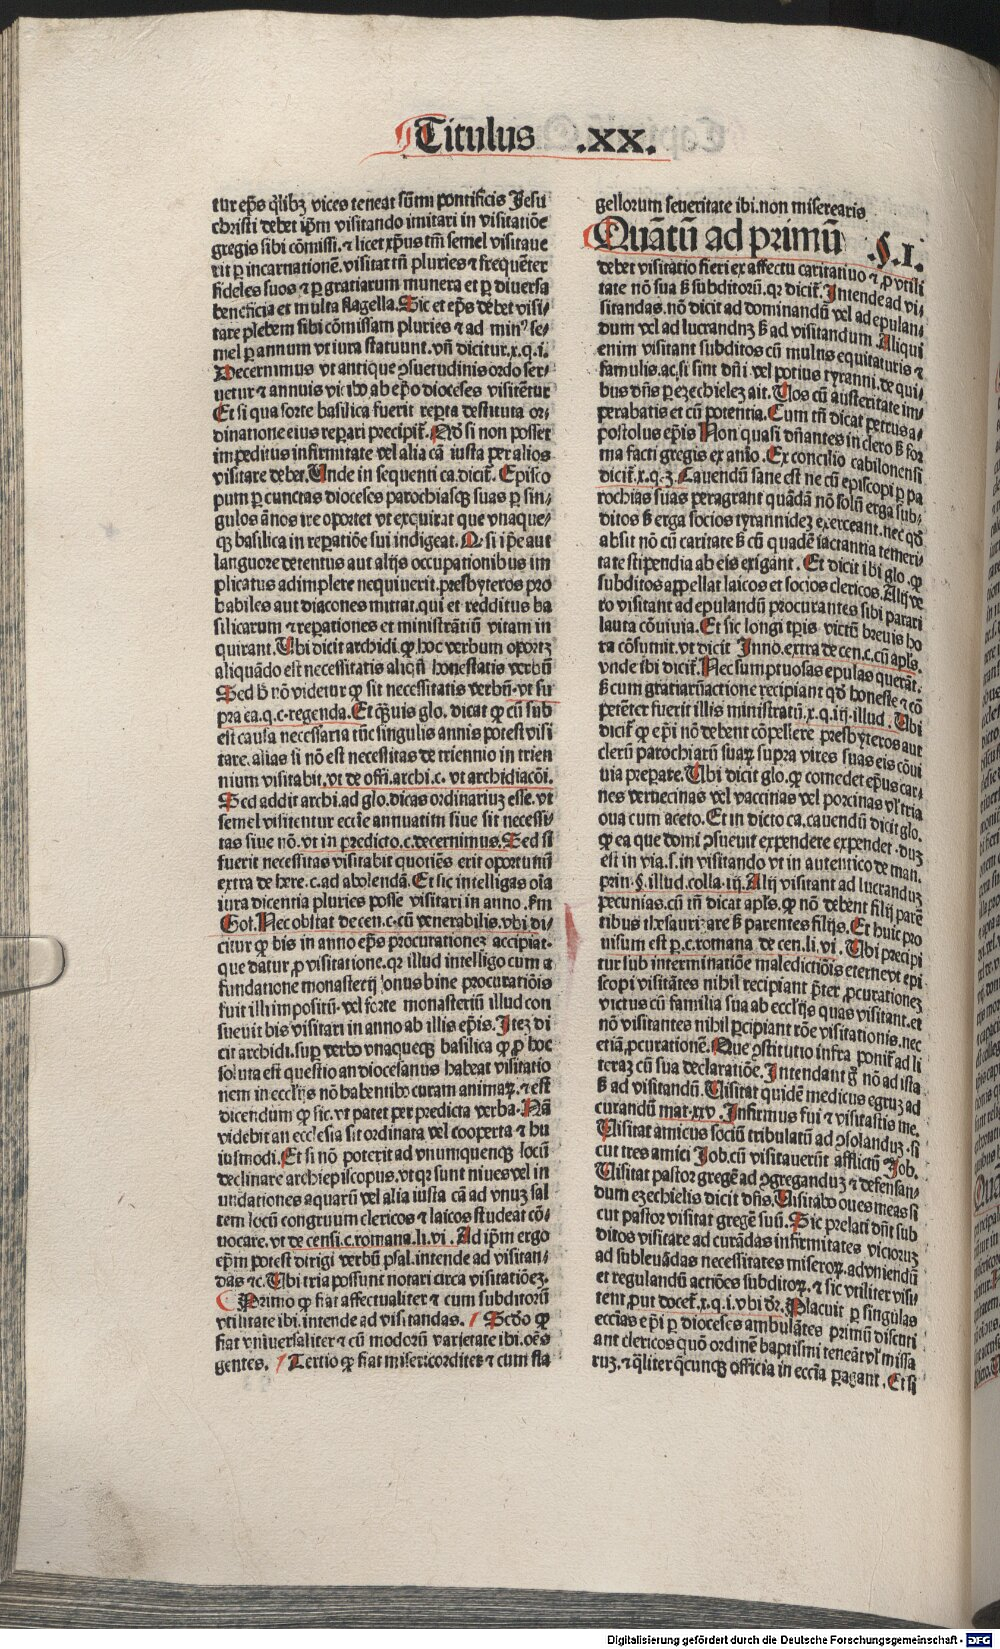 Titulus .XX.
tur ep̄s q̄libꝫ vices teneat sūmi pontificis Jesu
christi debet ip̄m visitando imitari in visitatiōe
gregis sibi cōmissi. ⁊ licet xp̄us tm̄ semel visitaue
rit ꝑ incarnationē. visitat tn̄ pluries ⁊ frequēter
fideles suos ⁊ ꝑ gratiarum munera et ꝑ diuersa
beneficia et multa flagella. Sic et ep̄s debet visi⸗
tare plebem sibi cōmissam pluries ⁊ ad minꝰ se⸗
mel ꝑ annum vt iura statuunt. vn̄ dicitur. x. q. i.
Decernimus vt antique ꝯsuetudinis ordo ser⸗
uetur ⁊ annuis vicibo ab ep̄o dioceses visitētur
Et si qua forte basilica fuerit reꝑta destituta or⸗
dinatione eius reꝑari precipit̄. Ꝙ si non posset
impeditus infirmitate vel alia cā iusta per alios
visitare debet. Unde in sequenti ca. dicit̄. Episco
pum ꝑ cunctas dioceses parochiasqꝫ suas ꝑ sin⸗
gulos ānos ire oportet vt exquirat que vnaque⸗
qꝫ basilica in reꝑatiōe sui indigeat. Q si ip̄e aut
languore detentus aut alijs occupationibus im
plicatus adimplete nequiuerit. presbyteros pro
babiles aut diacones mittat. qui et redditus ba
silicarum ⁊ reꝑationes et ministrātiū vitam in
quirant. Ubi dicit archidi. ꝙ hoc verbum oportꝫ
aliquādo est necessitatis aliqn̄ honestatis verbū
Sed h̄ nō videtur ꝙ sit necessitatis verbū. vt su
pra ea. q. c. regenda. Et qꝫuis glo. dicat ꝙ cū sub
est causa necessaria tūc singulis annis potest visi
tare. alias si nō est necessitas de triennio in trien
nium visitabit. vt de offi. archi. c. vt archidiacōi.
Sed addit archi. ad glo. dicas ordinariuꝫ esse. vt
semel visitentur eccl̄ie annuatim siue sit necessi⸗
tas siue nō. vt in predicto. c. decernimus. Sed si
fuerit necessitas visitabit quotiēs erit oportunū
extra de here. c. ad abolendā. Et sic intelligas oīa
iura dicentia pluries posse visitari in anno. ẜm
Got. Nec obstat de cen. c. cū venerabilis. vbi di⸗
citur ꝙ bis in anno ep̄s procurationeꝫ accipiat.
que datur ꝓ visitatione. qꝛ illud intelligo cum a
fundatione monasterij honus bine procuratiōis
fuit illi impositū. vel forte monasteriū illud con
sueuit bis visitari in anno ab illis ep̄is. Iteꝫ di
cit archidi. suꝑ verbo vnaqueqꝫ basilica ꝙ ꝓ hoc
soluta est questio an diocesanus habeat visitatio
nem in eccl̄ijs nō habentibꝰ curam animaꝝ. ⁊ est
dicendum ꝙ sic. vt patet per predicta verba. Nā
videbit an ecclesia sit ordinata vel cooperta ⁊ hu
iusmodi. Et si nō poterit ad vnumquemqꝫ locū
declinare archiepiscopus. vt qꝛ sunt niues vel in
undationes aquarū vel alia iusta cā ad vnuꝫ sal
tem locū congruum clericos ⁊ laicos studeat cō⸗
uocare. vt de censi. c. romana. li. vi. Ad ip̄m ergo
ep̄m potest dirigi verbū psal. intende ad visitan⸗
das ⁊c. Ubi tria possunt notari circa visitatiōeꝫ.
Primo ꝙ fiat affectualiter ⁊ cum subditorū
vtilitate ibi. intende ad visitandas. Scd̄o ꝙ
fiat vniuersaliter ⁊ cū modorū varietate ibi. oēs
gentes. Tertio ꝙ fiat misericorditer ⁊ cum fla
gellorum seueritate ibi. non miserearis
Quātū ad primū §.I.
debet visitatio fieri ex affectu caritatiuo ⁊ ꝓ vtili
tate nō sua ẜ subditorū. qꝛ dicit̄. Intende ad vi⸗
sitandas. nō dicit ad dominandū vel ad epulan⸗
dum vel ad lucrandnꝫ ẜ ad visitandum Aliqui
enim visitant subditos cū multis equitaturis ⁊
famulis. ac. si sint dn̄i vel potius tyranni. de qui⸗
bus dn̄s ꝑ ezechieleꝫ ait. Uos cū austeritate im⸗
perabatis et cū potentia. Cum tn̄ dicat petrus a⸗
postolus ep̄is Non quasi dn̄antes in clero ẜ for
ma facti gregis ex aīo. Ex concilio cabilonensi
dicit̄. x. q. 3. Cauendū sane est ne cū episcopi ꝑ pa
rochias suas peragrant quādā nō solū erga sub⸗
ditos ẜ erga socios tyrannideꝫ exerceant. nec qd̄
absit nō cū caritate ẜ cū quadē iactantia temeri⸗
tate stipendia ab eis exigant. Et dicit ibi glo. ꝙ
subditos appellat laicos et socios clericos. Alij ve
ro visitant ad epulandū procurantes sibi parari
lauta cōuiuia. Et sic longi tꝑis victū breuis ho
ra cōsumit. vt dicit Inno. extra de cen. c. cū apl̄s.
vnde ibi dicit̄. Nec sumptuosas epulas querāt.
ẜ cum gratiarūactione recipiant qd̄ honeste ⁊ cō
petēter fuerit illis ministratū. x. q. iij. illud. Ubi
dicit̄ ꝙ ep̄i nō debent cōpellere presbyteros aut
clerū parochiarū suaꝝ supra vires suas eis cōui
uia preꝑate. Ubi dicit glo. ꝙ comedet ep̄us car⸗
nes veruecinas vel vaccinas vel porcinas vl̄ tria
oua cum aceto. Et in dicto ca. cauendū dicit glo.
ꝙ ea que domi ꝯsueuit expendere expendet. duꝫ
est in via. s. in visitando vt in autentico de man.
prin. §. illud. colla. iij. Alij visitant ad lucranduꝫ
pecunias. cū tn̄ dicat apl̄s. ꝙ nō debent filij parē
tibus thesaurizare ẜ parentes filijs. Et huic pro
uisum est ꝑ. c. romana de cen. li. vi. Ubi precipi
tur sub interminatiōe maledictiōis eterne vt epi
scopi visitātes nihil recipiant p̄ter ꝓcurationeꝫ
victus cū familia sua ab eccl̄ijs quas visitant. et
nō visitantes nihil ꝑcipiant rōe visitationis. nec
etiā ꝓcurationē. Que ꝯstitutio infra ponit̄ ad li
teraꝫ cū sua declaratiōe. Intendant g̊ nō ad ista
ẜ ad visitandū. Uisitat quidē medicus egruꝫ ad
curandū mat. xxv. Infirmus fui ⁊ visitastis me.
Uisitat amicus sociū tribulatū ad ꝯsolanduꝫ. si
cut tres amici Job. cū visitauerūt afflictū Job.
Uisitat pastor gregē ad ꝯgreganduꝫ ⁊ defensan⸗
dum ezechielis dicit dn̄s. Uisitabo oues meas si
cut pastor visitat gregē suū. Sic prelati dn̄t sub
ditos visitare ad curādas infirmitates vicioruꝫ
ad subleuādas necessitates miseroꝝ. adueniendū
et regulandū actiōes subditoꝝ. ⁊ sic vtiliter visi⸗
tent. ꝓut docet̄. x. q. i. vbi dr̄. Placuit ꝑ singulas
eccl̄ias ep̄i ꝑ dioceses ambulātes primū discuti
ant clericos quō ordinē baptismi teneāt vl̄ missa
ruꝫ. ⁊ q̄liter q̄cunqꝫ officia in eccl̄ia peragant. Et si
Digitalisierung gefördert durch die Deutsche Forschungsgemeinschaft - DFG